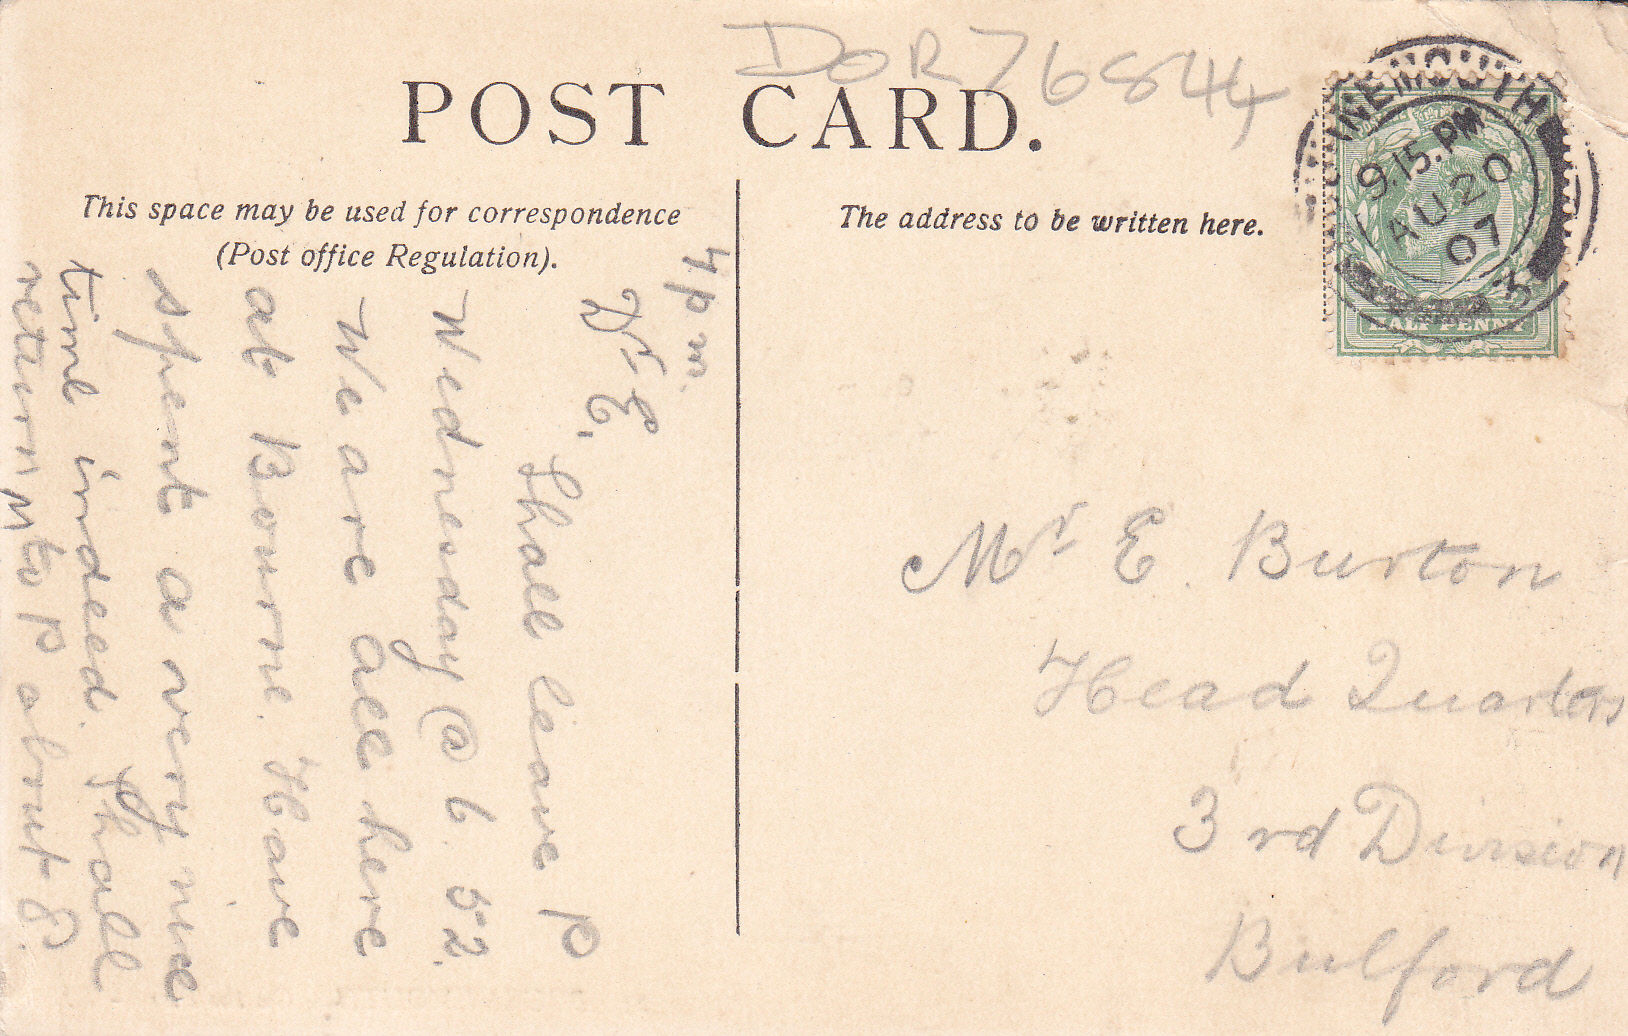 DOR76844
POST CARD.
This space may be used for correspondence
(Post office Regulation).
The address to be written here.
MOUTH
9.15.PM
AU 20
07
3
HALF PENNY
4 pm.
Dr E,
Shall leave P
Wednesday @ 6.52.
We are all here
at Bourne. Have
spent a very nice
time indeed. Shall
return to P about 8.
Mr E. Burton
Head Quarters
3rd Division
Bulford